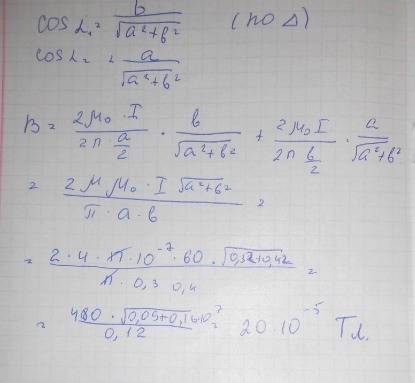 cos α₁ = b / √(a² + b²) (по Δ)
cos α₂ = a / √(a² + b²)
B = (2μ₀ · I) / (2π · a/2) · b / √(a² + b²) + (2μ₀ I) / (2π · b/2) · a / √(a² + b²)
= (2μμ₀ · I √(a² + b²)) / (π · a · b) =
= (2 · 4 · π · 10⁻⁷ · 60 · √(0,3² + 0,4²)) / (π · 0,3 0,4) =
= (480 · √(0,09 + 0,16) · 10⁻⁷) / 0,12 = 20 · 10⁻⁵ Тл.